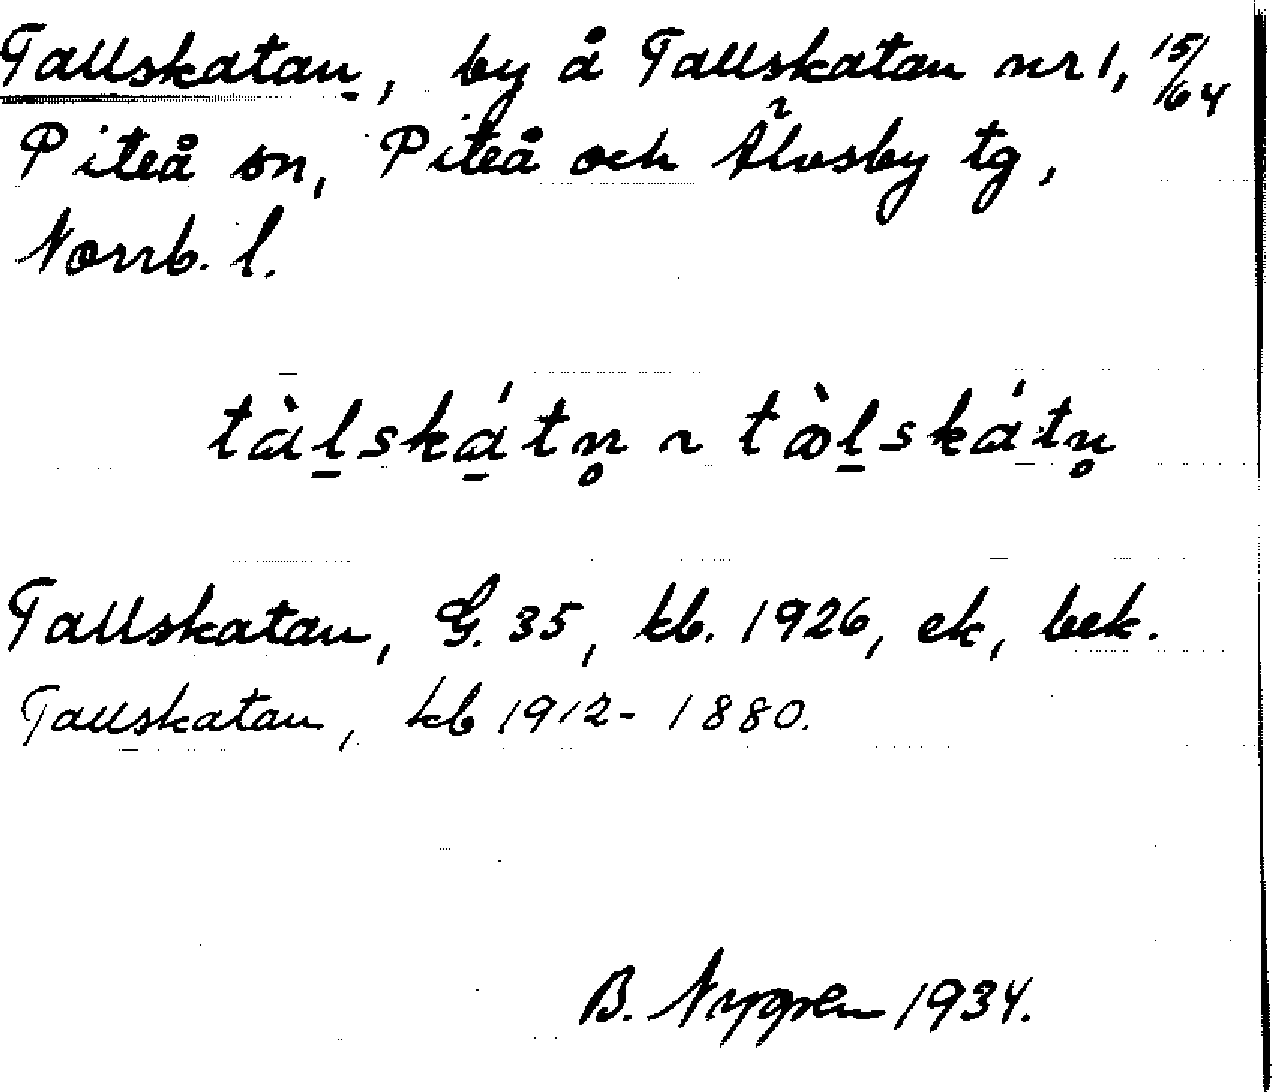 Tallskatan, by å Tallskatan nr 1, 15/64
Piteå sn, Piteå och Älvsby tg,
Norrb. l.
tàl̠ská̠tn̥ ~ tòl̠skátn̥
Tallskatan, G. 35, kb. 1926, ek, bek.
Tallskatan, kb 1912-1880.
B. Nygren 1934.